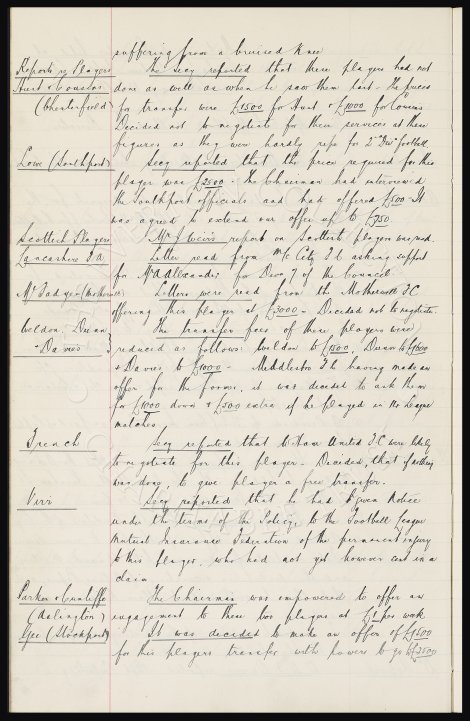 suffering from a bruised knee
Reports of Players The Secy reported that these players had not
Hurst & Cousins done as well as when he saw them last. The prices
(Chesterfield) for transfer were £1500 for Hurst & £1000 for Cousins
Decided not to negotiate for their services at these
figures as they were hardly ripe for 2nd Div football.
Lowe (Southport) Secy reported that the price required for this
player was £2500 - The Chairman had interviewed
the Southport officials and had offered £500. It
was agreed to extend our offer up to £750
Scottish Players Mr J Weir's report on Scottish players was read.
Lancashire F.A. Letter read from M/c City F.C asking support
for Mr A Alexander for Divn 7 of the Council
(Motherwell) Letters were read from the Motherwell F.C
offering this player at £3000 - Decided not to negotiate.
Weldon, Dunn The transfer fees of these players were
& Davies reduced as follows: Weldon to £1500, Dunn to
& Davies to £1000 - Middlesbro F.C having made an
offer for the former, it was decided to ask them
for £1000 down & £500 extra if he played in League
matches.
French Secy reported that W Ham United F.C were likely
to negotiate for this player - Decided, that if nothing
was done, to give player a free transfer.
Virr Secy reported that he had given Notice
under the terms of the Policy to the Football League
Mutual Insurance Federation of the permanent injury
to this player, who had not yet however sent in a
claim
Parker & Cunliffe The Chairman was empowered to offer an
(Darlington) engagement to these two players at per week
Gee (Stockport) It was decided to make an offer of £1500
for this players transfer with powers to go to £2500